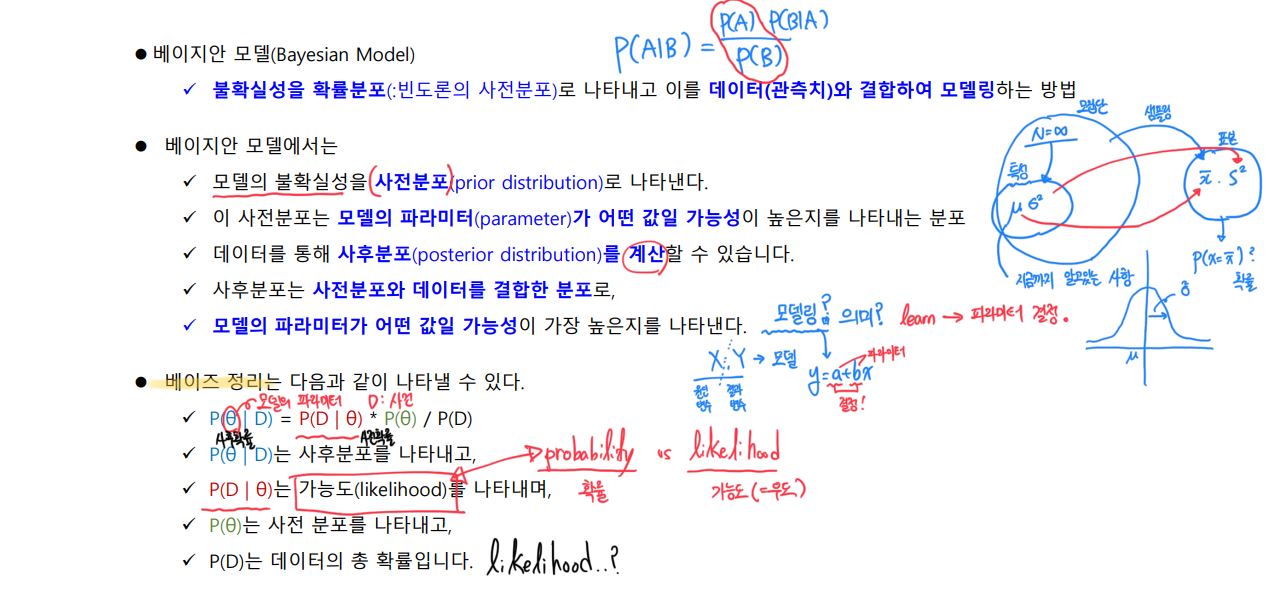 P(A|B) = P(A) P(B|A) / P(B)
● 베이지안 모델(Bayesian Model)
✓ 불확실성을 확률분포(:빈도론의 사전분포)로 나타내고 이를 데이터(관측치)와 결합하여 모델링하는 방법
모집단
샘플링
N=∞
표본
● 베이지안 모델에서는
특징
✓ 모델의 불확실성을 (사전분포)(prior distribution)로 나타낸다.
x̄ . S²
μ σ²
✓ 이 사전분포는 모델의 파라미터(parameter)가 어떤 값일 가능성이 높은지를 나타내는 분포
✓ 데이터를 통해 사후분포(posterior distribution)를 계산할 수 있습니다.
P(x=x̄)?
확률
지금까지 알고있는 사항
✓ 사후분포는 사전분포와 데이터를 결합한 분포로,
σ
✓ 모델의 파라미터가 어떤 값일 가능성이 가장 높은지를 나타낸다.
모델링? 의미? learn → 파라미터 결정.
μ
X : Y → 모델
파라미터
y=a+bx
원인 변수
결과 변수
결정!
● 베이즈 정리는 다음과 같이 나타낼 수 있다.
모델의 파라미터 D: 사건
✓ P(θ | D) = P(D | θ) * P(θ) / P(D)
사후확률 사전확률
✓ P(θ | D)는 사후분포를 나타내고,
probability vs likelihood
✓ P(D | θ)는 가능도(likelihood)를 나타내며,
확률 가능도(=우도)
✓ P(θ)는 사전 분포를 나타내고,
✓ P(D)는 데이터의 총 확률입니다.
likelihood..?